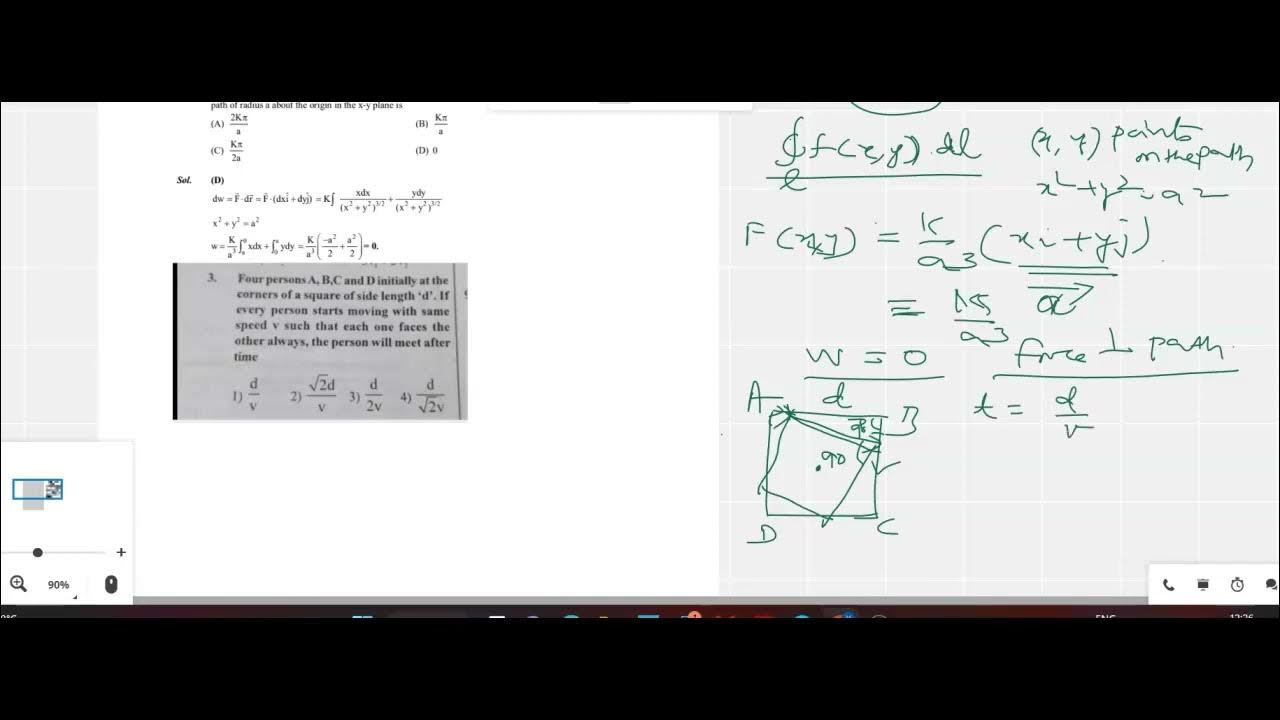 path of radius a about the origin in the x-y plane is
(A) 2Kπ/a
(B) Kπ/a
(C) Kπ/2a
(D) 0
Sol. (D)
dw = F⃗ · dr⃗ = F⃗ · (dxî + dyĵ) = K∫ xdx/(x² + y²)^3/2 + ydy/(x² + y²)^3/2
x² + y² = a²
w = K/a³ ∫ₐ⁰ xdx + ∫₀ᵃ ydy = K/a³ (-a²/2 + a²/2) = 0.
3. Four persons A, B,C and D initially at the
corners of a square of side length 'd'. If
every person starts moving with same
speed v such that each one faces the
other always, the person will meet after
time
1) d/v 2) √2d/v 3) d/2v 4) d/√2v
∮ f(x,y) . dl
l
(x, y) points
on the path
x² + y² = a²
F(x,y) = K/a³ (xi + yj)
= K/a³ a⃗
W = 0
force ⊥ path.
A d B
t = d/v
90
D C
90%
ENG
12:26